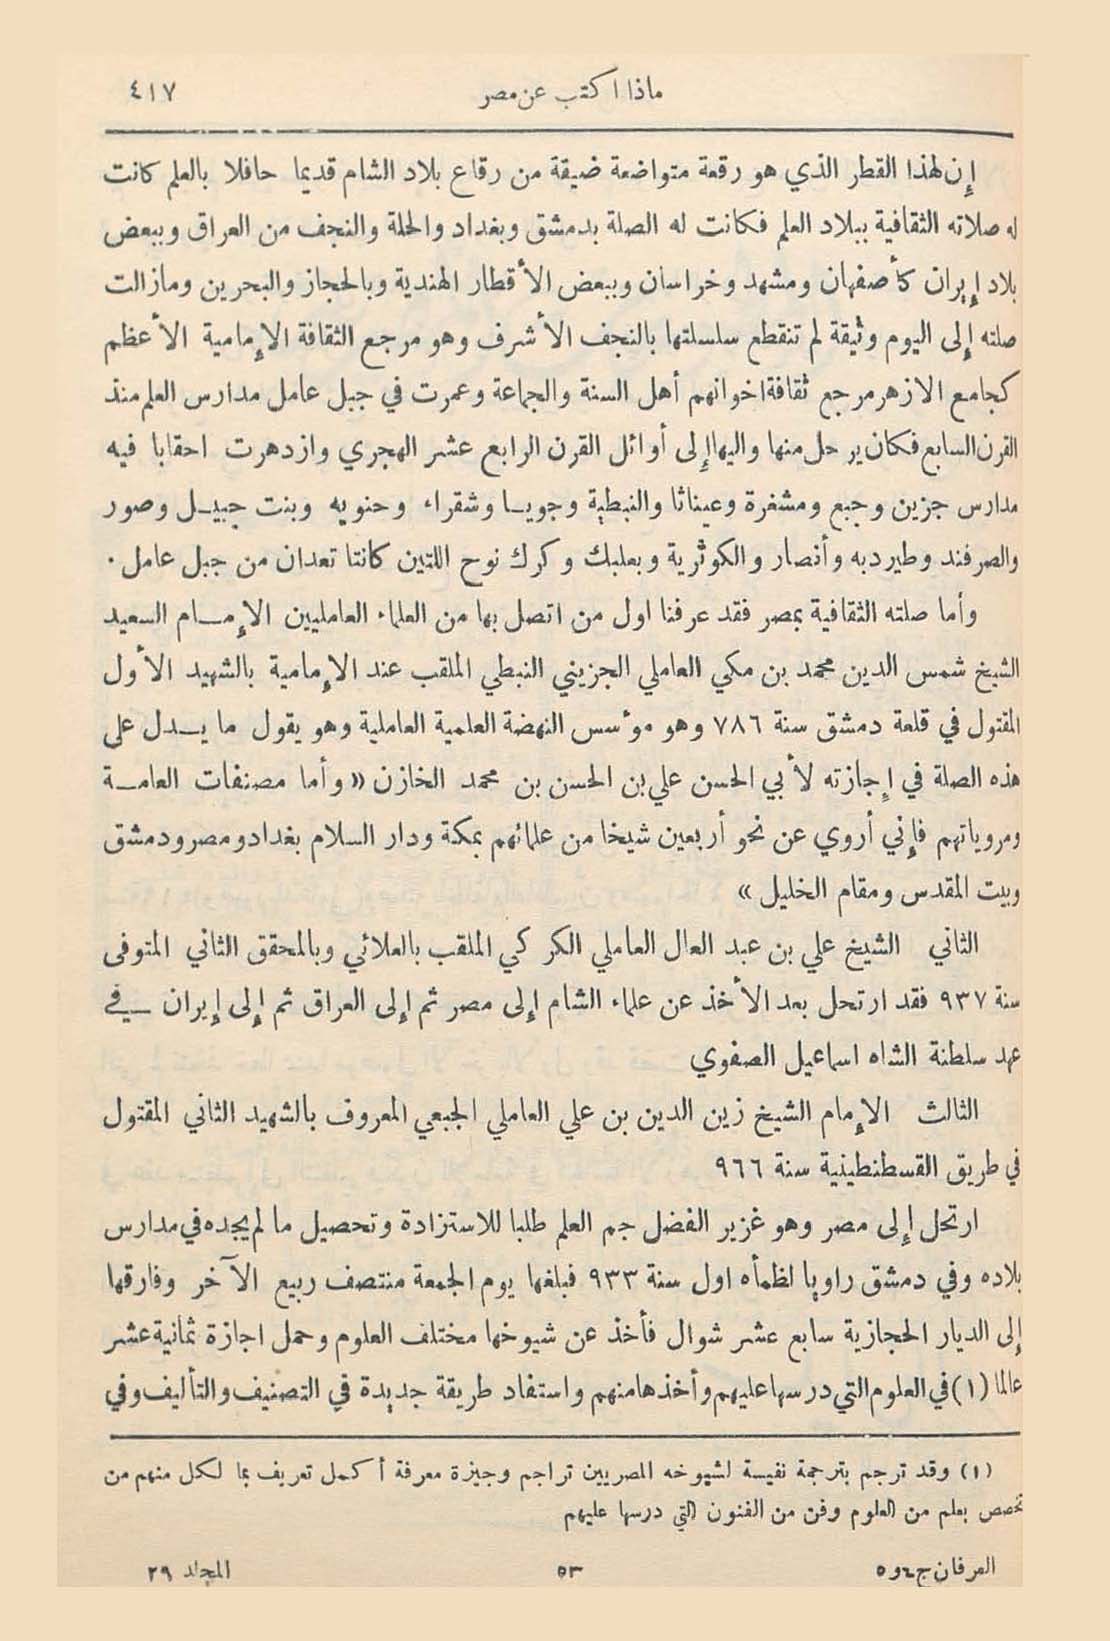 ماذا اكتب عن مصر
٤١٧
إن لهذا القطر الذي هو رقعة متواضعة ضيقة من رقاع بلاد الشام قديما حافلا بالعلم كانت
له صلاته الثقافية ببلاد العلم فكانت له الصلة بدمشق وبغداد والحلة والنجف من العراق وببعض
بلاد إيران كأصفهان ومشهد وخراسان وببعض الأقطار الهندية وبالحجاز والبحرين ومازالت
صلته إلى اليوم وثيقة لم تنقطع سلسلتها بالنجف الأشرف وهو مرجع الثقافة الإمامية الأعظم
كجامع الازهر مرجع ثقافة اخوانهم أهل السنة والجماعة وعمرت في جبل عامل مدارس العلم منذ
القرن السابع فكان يرحل منها واليها إلى أوائل القرن الرابع عشر الهجري وازدهرت احقابا فيه
مدارس جزين وجبع ومشغرة وعيناثا والنبطية وجويـا وشقراء وحنويه وبنت جبيـل وصور
والصرفند وطيردبه وأنصار والكوثرية وبعلبك وكرك نوح اللتين كانتا تعدان من جبل عامل .
وأما صلته الثقافية بمصر فقد عرفنا اول من اتصل بها من العلماء العامليين الإمـام السعيد
الشيخ شمس الدين محمد بن مكي العاملي الجزيني النبطي الملقب عند الإمامية بالشهيد الأول
المقتول في قلعة دمشق سنة ٧٨٦ وهو مؤسس النهضة العلمية العاملية وهو يقول ما يـدل على
هذه الصلة في إجازته لأبي الحسن علي بن الحسن بن محمد الخازن « وأما مصنفات العامـة
ومروياتهم فإني أروي عن نحو أربعين شيخا من علمائهم بمكة ودار السلام بغداد ومصر ودمشق
وبيت المقدس ومقام الخليل »
الثاني الشيخ علي بن عبد العال العاملي الكركي الملقب بالعلائي وبالمحقق الثاني المتوفى
سنة ٩٣٧ فقد ارتحل بعد الأخذ عن علماء الشام إلى مصر ثم إلى العراق ثم إلى إيران في
عهد سلطنة الشاه اسماعيل الصفوي
الثالث الإمام الشيخ زين الدين بن علي العاملي الجبعي المعروف بالشهيد الثاني المقتول
في طريق القسطنطينية سنة ٩٦٦
ارتحل إلى مصر وهو غزير الفضل جم العلم طلبا للاستزادة وتحصيل ما لم يجده في مدارس
بلاده وفي دمشق راويا لظمأه اول سنة ٩٣٣ فبلغها يوم الجمعة منتصف ربيع الآخر وفارقها
إلى الديار الحجازية سابع عشر شوال فأخذ عن شيوخها مختلف العلوم وحمل اجازة ثمانية عشر
عالما (١) في العلوم التي درسها عليهم وأخذها منهم واستفاد طريقة جديدة في التصنيف والتأليف وفي
(١) وقد ترجم بترجمة نفيسة لشيوخه المصريين تراجم وجيزة معرفة أكمل تعريف بما لكل منهم من
تخصص بعلم من العلوم وفن من الفنون التي درسها عليهم
العرفان ج٤و٥
٥٣
المجلد ٢٩